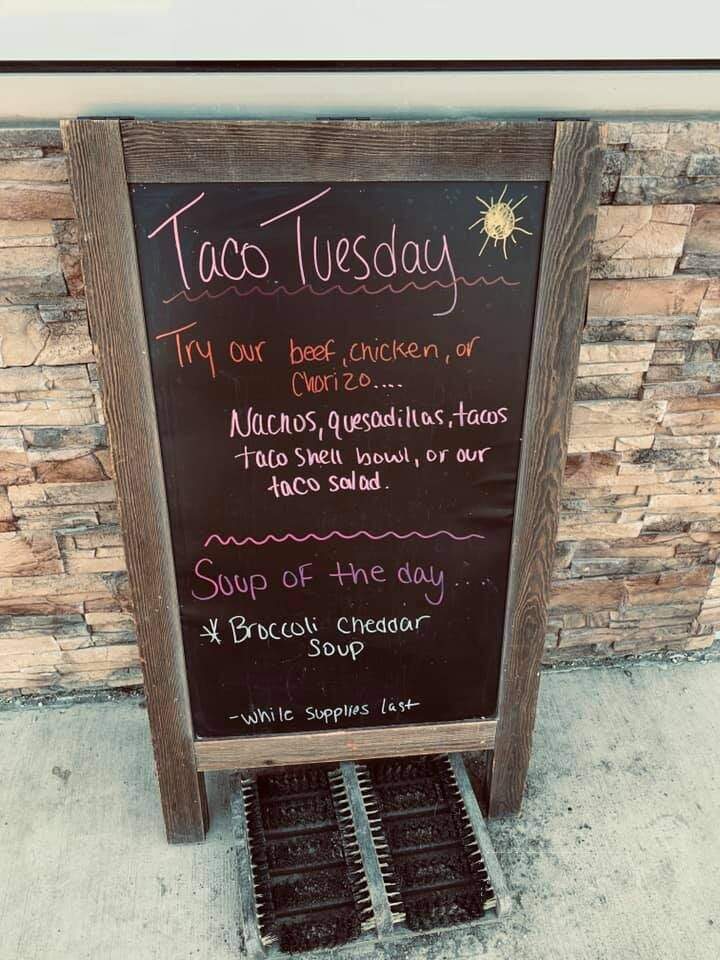 Taco Tuesday
Try our beef, chicken, or
Chorizo....
Nachos, quesadillas, tacos
taco shell bowl, or our
taco salad.
Soup of the day....
* Broccoli Cheddar
Soup
-while supplies last